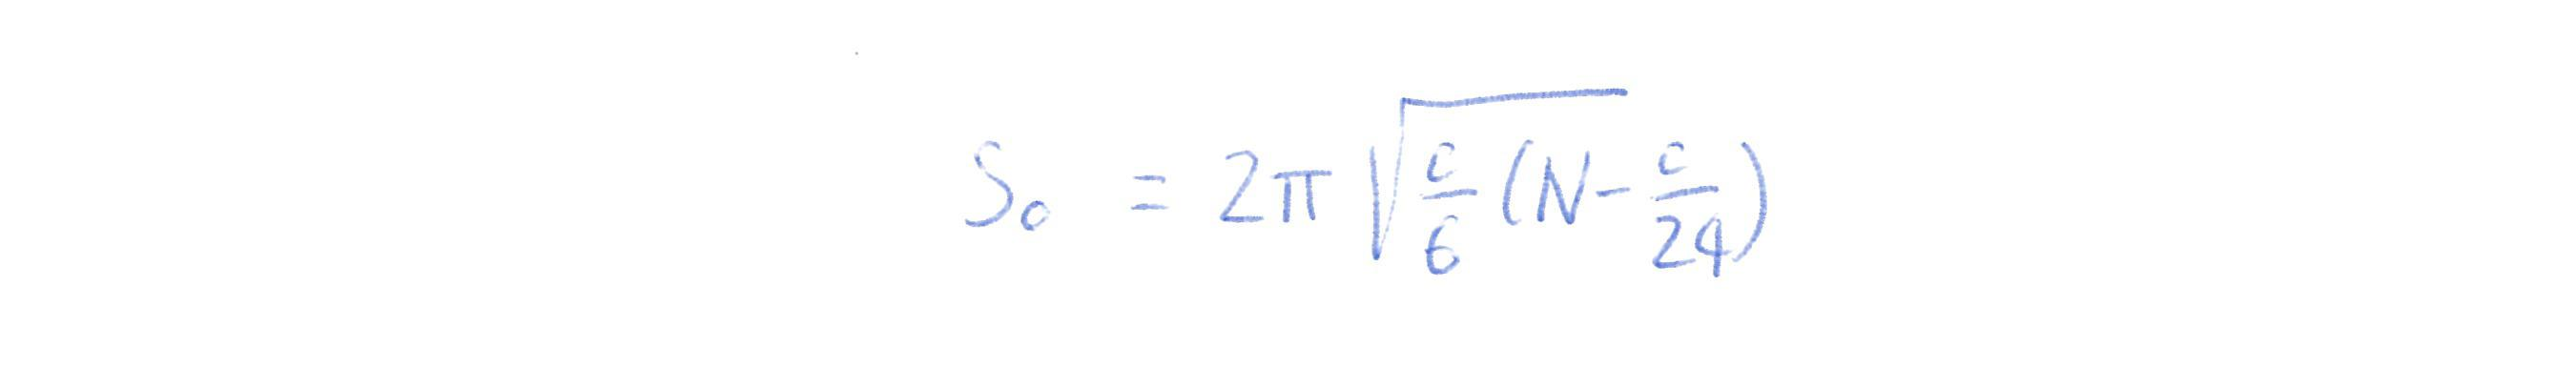 S₀ = 2π √(c/6 (N - c/24))